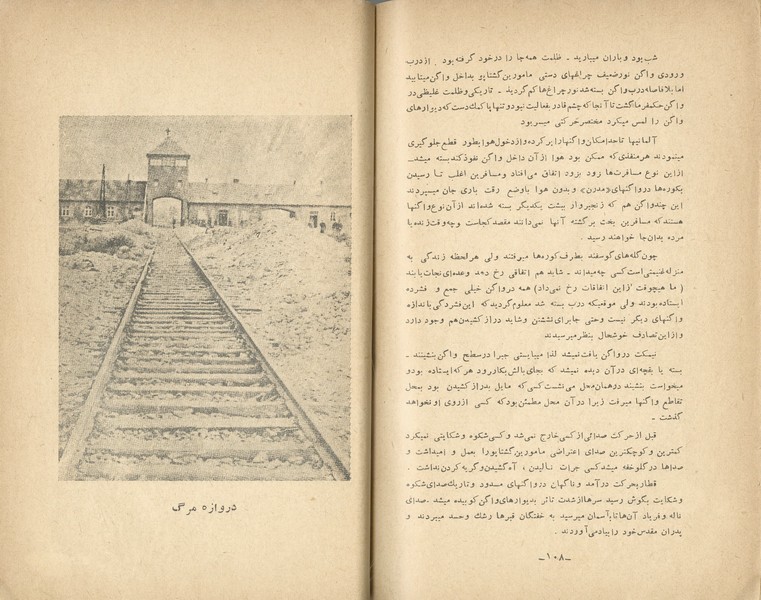 شب بود و باران میبارید - ظلمت همه جا را در خود گرفته بود . از درب
ورودی واگن نور ضعیف چراغهای دستی مامورین گشتاپو بداخل واگن میتابید
اما بلافاصله درب واگن بسته شد نور چراغ ها کم گردید - تاریکی و ظلمت غلیظی در
واگن حکمفرما گشت تا آنجا که چشم قادر بفعالیت نبود و تنها با کمك دست که دیوارهای
واگن را لمس میکرد مختصر حرکتی میسر بود
آلمانیها تا حد امکان واگنها را پر کرده و از دخول هوا بطور قطع جلوگیری
مینمودند هر منفذی که ممکن بود هوا از آن داخل واگن نفوذ کند بسته میشد ـ
از این نوع مسافرت‌ها زود بزود اتفاق می‌افتاد و مسافرین اغلب تا رسیدن
بکوره‌ها در واگنهای «مدرن» و بدون هوا با وضع رقت باری جان میسپردند
این چند واگن هم که زنجیروار پشت یکدیگر بسته شده‌اند از آن نوع واگنها
هستند که مسافرین بخت برگشته آنها نمی‌دانند مقصد کجاست و چه وقت زنده یا
مرده بدان جا خواهند رسید .
چون گله‌های گوسفند بطرف کوره‌ها میرفتند ولی هر لحظه زندگی به
منزله غنیمتی است کسی چه میداند - شاید هم اتفاقی رخ دهد و عده‌ای نجات یابند
( ما هیچوقت از این اتفاقات رخ نمی‌داد) همه در واگن خیلی جمع و فشرده
ایستاده بودند ولی موقعیکه درب بسته شد معلوم گردید که این فشردگی باندازه
واگنهای دیگر نیست و حتی جا برای نشستن و شاید دراز کشیدن هم وجود دارد
و از این تصادف خوشحال بنظر میرسیدند
نیمکت در واگن یافت نمیشد لذا میبایستی جبرا در سطح واگن بنشینند ـ
بسته یا بقچه‌ای در آن دیده نمیشد که بجای بالش بکار رود هر که ایستاده بود و
میخواست بنشیند در همان محل می نشست کسی که مایل بدراز کشیدن بود بمحل
تقاطع واگنها میرفت زیرا در آن محل مطمئن بود که کسی از روی او نخواهد
گذشت ـ
قبل از حرکت صدائی از کسی خارج نمی‌شد و کسی شکوه و شکایتی نمیکرد
کمترین و کوچکترین صدای اعتراضی مامورین گشتاپو را بعمل و امیداشت و
صداها در گلو خفه میشد کسی جرات نالیدن ، آه کشیدن و گریه کردن نداشت .
قطار بحرکت درآمد و ناگهان در واگنهای مسدود و تاریك صدای شکوه
و شکایت بگوش رسید سرها از شدت تاثر بدیوارهای واگن کوبیده میشد . صدای
ناله و فریاد آن‌ها تا بآسمان میرسید به خفتگان قبرها رشك و حسد میبردند و
پدران مقدس خود را بیاد می‌آوردند .
ـ۱۰۸ـ
دروازه مرگ